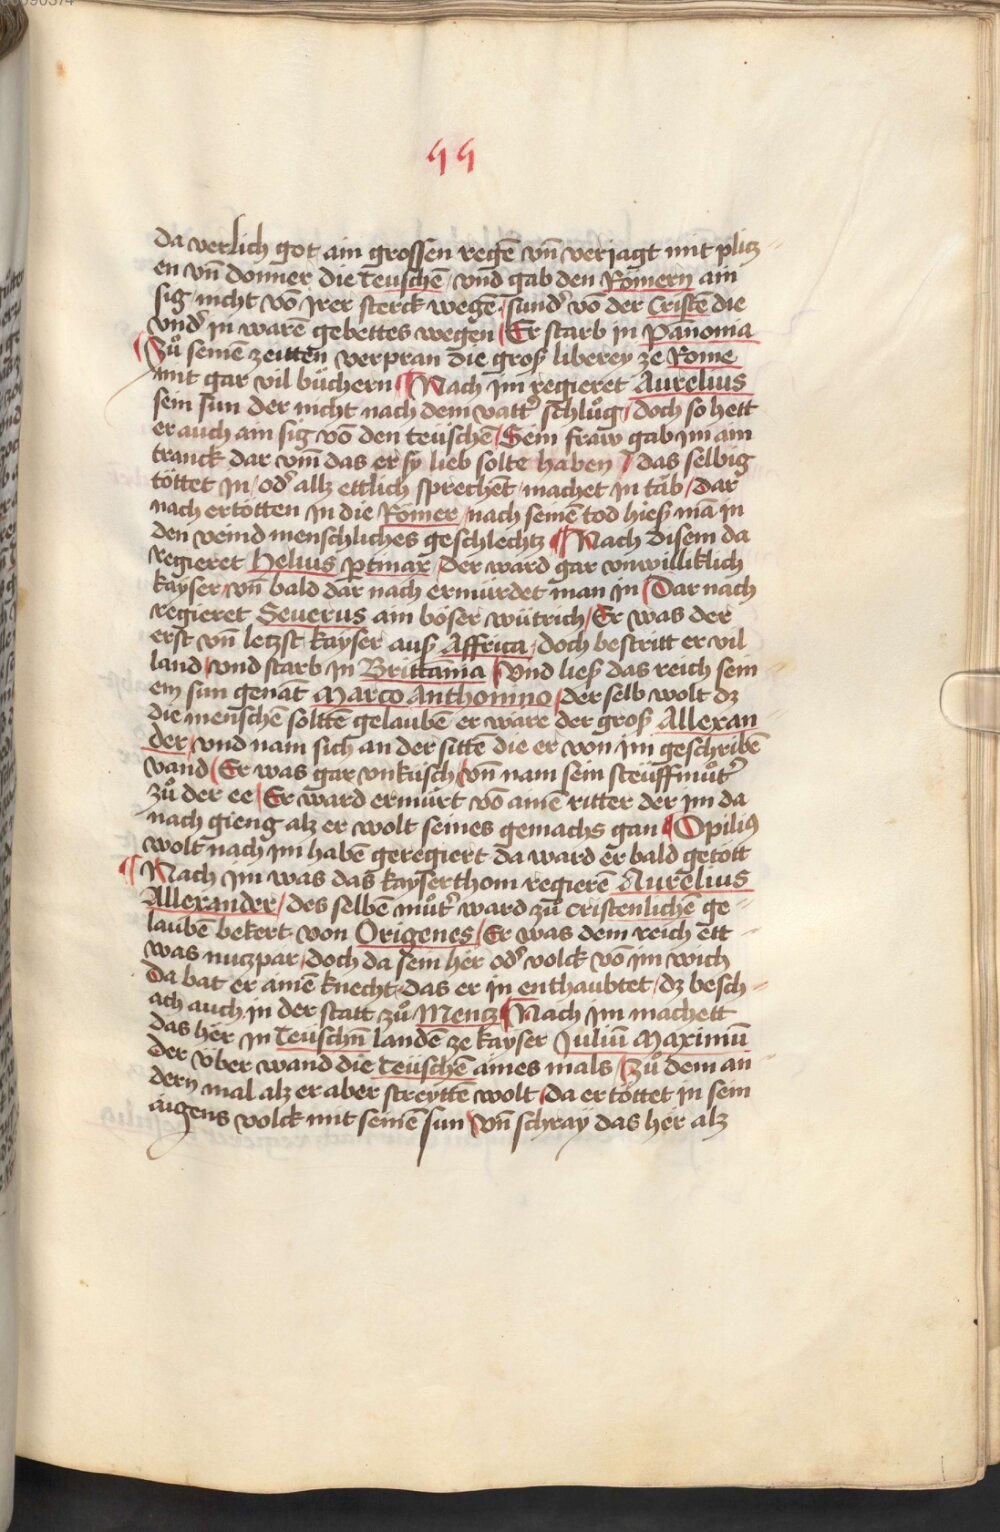 55
da verlich got ain grossen regē vn̄ verjagt mit plicz
en vn̄ donner die teuschē / vnd gab den Römern ain
sig / nicht vō jrer sterck wegē / sund᷑ vō der Cristē die
vnd᷑ in warē gebettes wegen / Er starb in Panonia
Zů seinē zeittēn verpran die groß liberey ze Rome
mit gar vil büchern ¶ Nach jm regieret Aurelius
sein sun der nicht nach dem vatt᷑ schlůg / doch so hett
er auch ain sig vō den teüschē / Sein fraw gab jm ain
tranck dar vm̄ das er sy lieb solte haben / das selbig
töttet jn / od᷑ alz ettlich sprechēt / machet jn tăb / Dar
nach ertötten jn die Römer / nach seinē tod hieß mā in
den veind menschliches geschlechtz ¶ Nach disem da
regieret Helius ꝑtinax / der ward gar vnwilliklich
kayser / vn̄ bald dar nach ermürdet man jn / Dar nach
regieret Seuerus ain böser wütrich / Er was der
erst vn̄ letzst kayser auß Affrica / doch bestritt er vil
land / vnd starb in Brittānia / Vnd ließ das reich sein
em sun genāt Marco Anthonino / der selb wolt dz
die menschē solttē gelaubē er wäre der groß Allexan
der / vnd nam sich an der sittē die er von jm geschribē
vand / Er was gar vnküsch / vn̄ nam sein steüffmůt᷑
zů der ee / Er ward ermürt vō ainē ritter der jm da
nach gieng alz er wolt seines gemachs gan ¶ Opiliꝯ
wolt nach jm habē geregiert da ward er bald getött
¶ Nach jm was das kayserthom regierē Aurelius
Allexander / des selbē můt᷑ ward zů cristenlichē ge
laubē bekert von Origenes / Er was dem reich ett
was nuczpar / doch da sein her od᷑ volck vō jm wich
Da bat er ainē knecht das er jn enthaubtet / dz besch
ach auch in der statt zů Mencz ¶ Nach jm machett
das her jn teüschn̄ landē ze kayser Juliū Maximū
der über wand die teüschē aines mals / Zů dem an
dern mal alz er aber streyttē wolt / da ertöttet jn sein
aigens volck mit seinē sun / Vn̄ schray das her alz